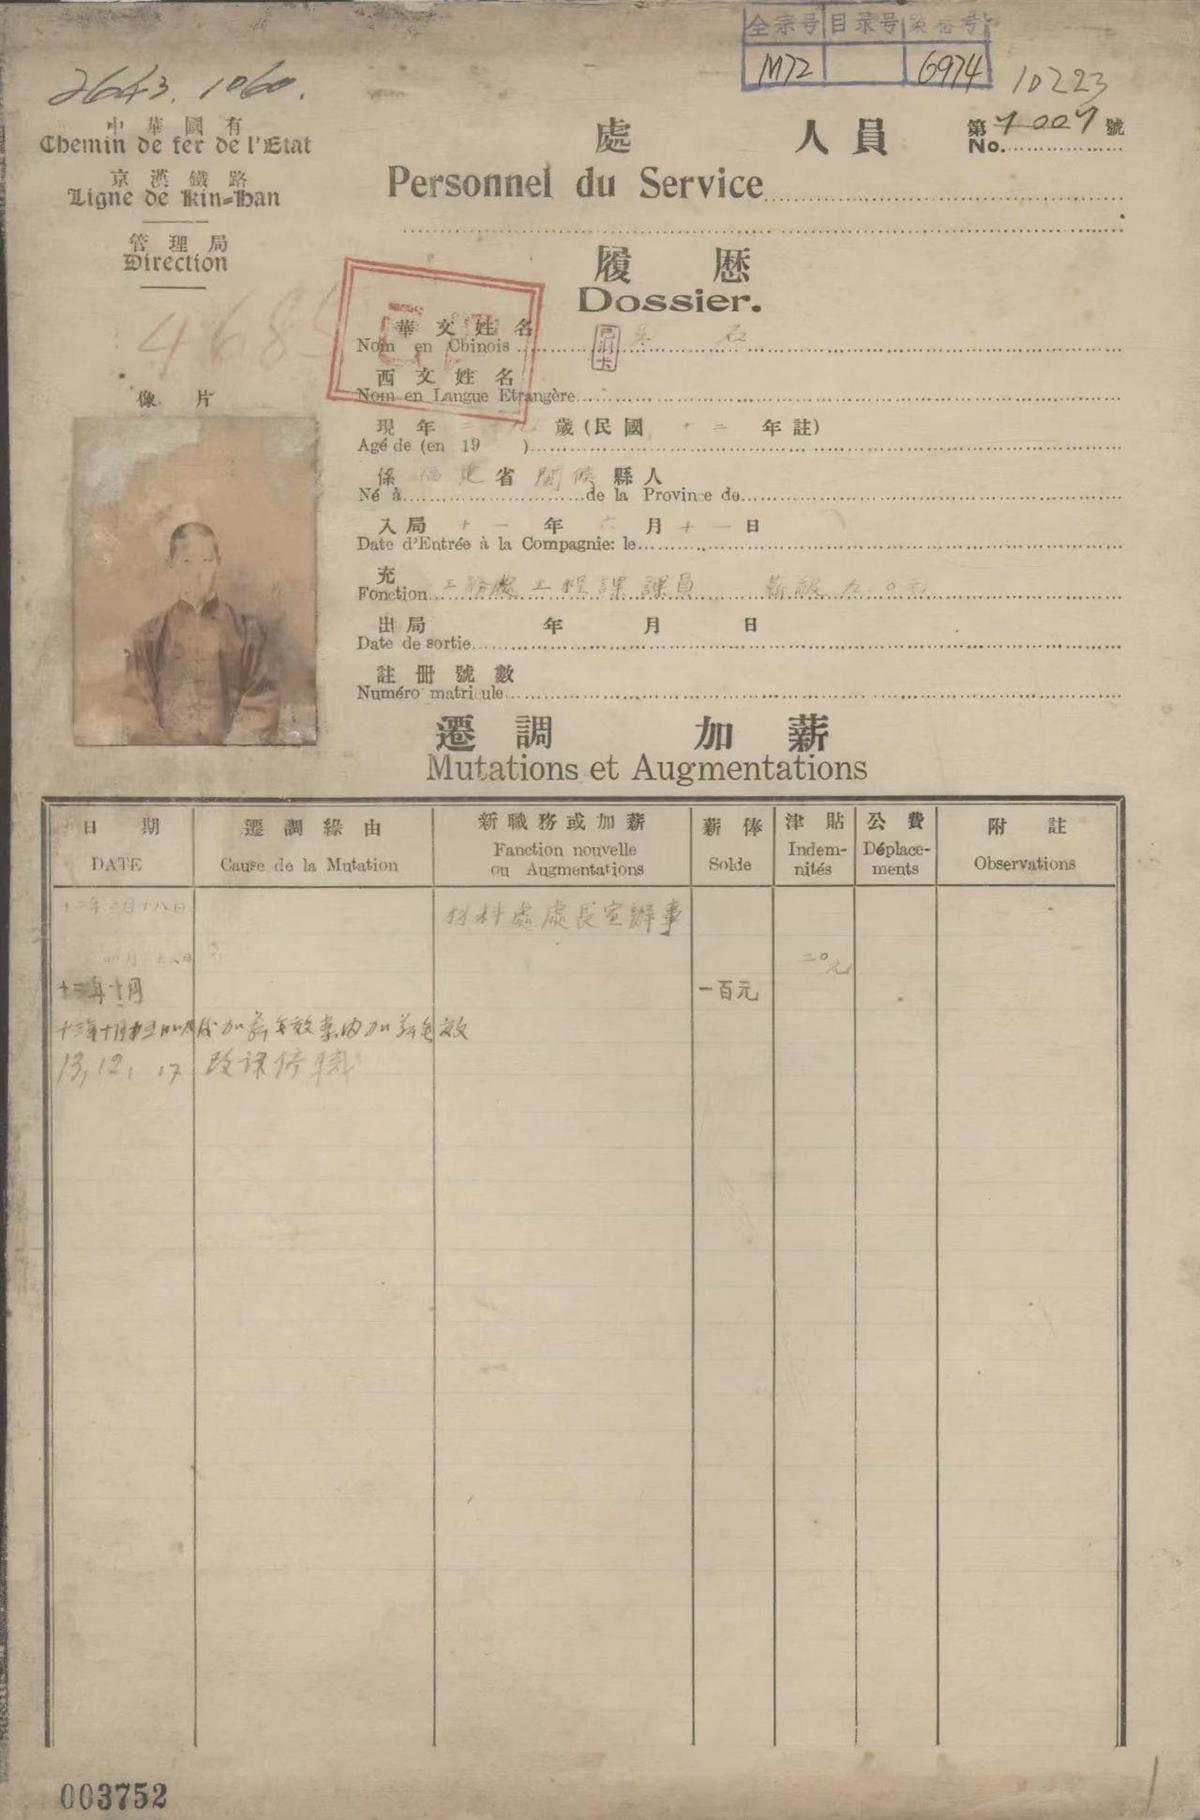 全宗号 目录号 案卷号
M72 6974 10223
2643.1060.
中華國有
Chemin de fer de l'Etat
京漢鐵路
Ligne de Kin-Han
管理局
Direction
處 人員
Personnel du Service
第 7007 號
No.
履歷
Dossier.
468
華文姓名 吳石
Nom en Chinois
西文姓名
Nom en Langue Etrangère
像片
現年 二十九 歲(民國 十二 年註)
Agé de (en 19 )
係 福建 省 閩侯 縣人
Né à de la Province de
入局 十一 年 六 月 十一 日
Date d'Entrée à la Compagnie: le
充 工務處工程課課員 薪級九〇元
Fonction
出局 年 月 日
Date de sortie
註冊號數
Numéro matricule
遷調 加薪
Mutations et Augmentations
日期 遷調緣由 新職務或加薪 薪俸 津貼 公費 附註
DATE Cause de la Mutation Fanction nouvelle ou Augmentations Solde Indem-nités Déplace-ments Observations
十二年二月十八日 材料處處長室辦事
二〇元
十三年十月 一百元
加薪無效案內加薪無效
13, 12, 17 改課停職
003752